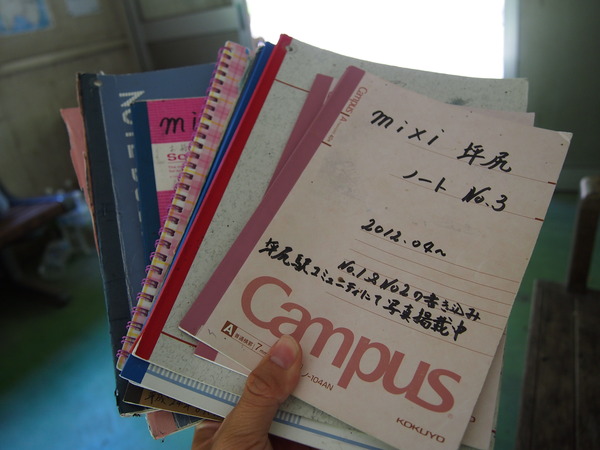 mixi 坪尻
ノート No.3
2012.04〜
No.1&No.2の書き込み
坪尻駅コミュニティにて写真掲載中
Campus
A 普通横罫 7
ノ-104AN
KOKUYO
Campus
NOTE
mixi